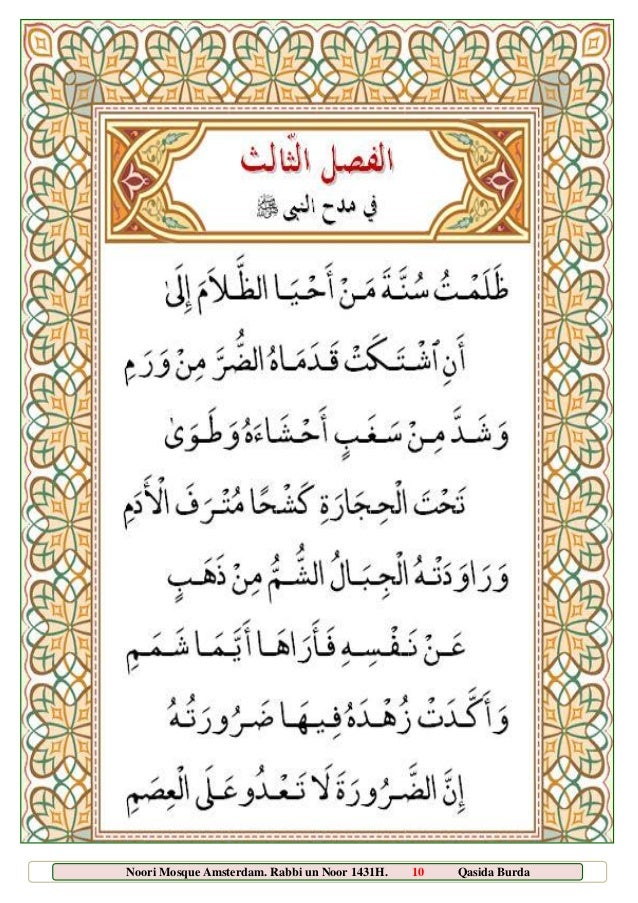 الفصل الثّالث
في مدح النبي ﷺ
ظَلَمْتُ سُنَّةَ مَنْ أَحْيَا الظَّلاَمَ إِلَىٰ
أَنِ ٱشْتَكَتْ قَدَمَاهُ الضُّرَّ مِنْ وَرَمِ
وَشَدَّ مِنْ سَغَبٍ أَحْشَاءَهُ وَطَوَىٰ
تَحْتَ الْحِجَارَةِ كَشْحًا مُتْرَفَ الْأَدَمِ
وَرَاوَدَتْهُ الْجِبَالُ الشُّمُّ مِنْ ذَهَبٍ
عَنْ نَفْسِهِ فَأَرَاهَا أَيَّمَا شَمَمِ
وَأَكَّدَتْ زُهْدَهُ فِيهَا ضَرُورَتُهُ
إِنَّ الضَّرُورَةَ لَا تَعْدُو عَلَى الْعِصَمِ
Noori Mosque Amsterdam. Rabbi un Noor 1431H. 10 Qasida Burda